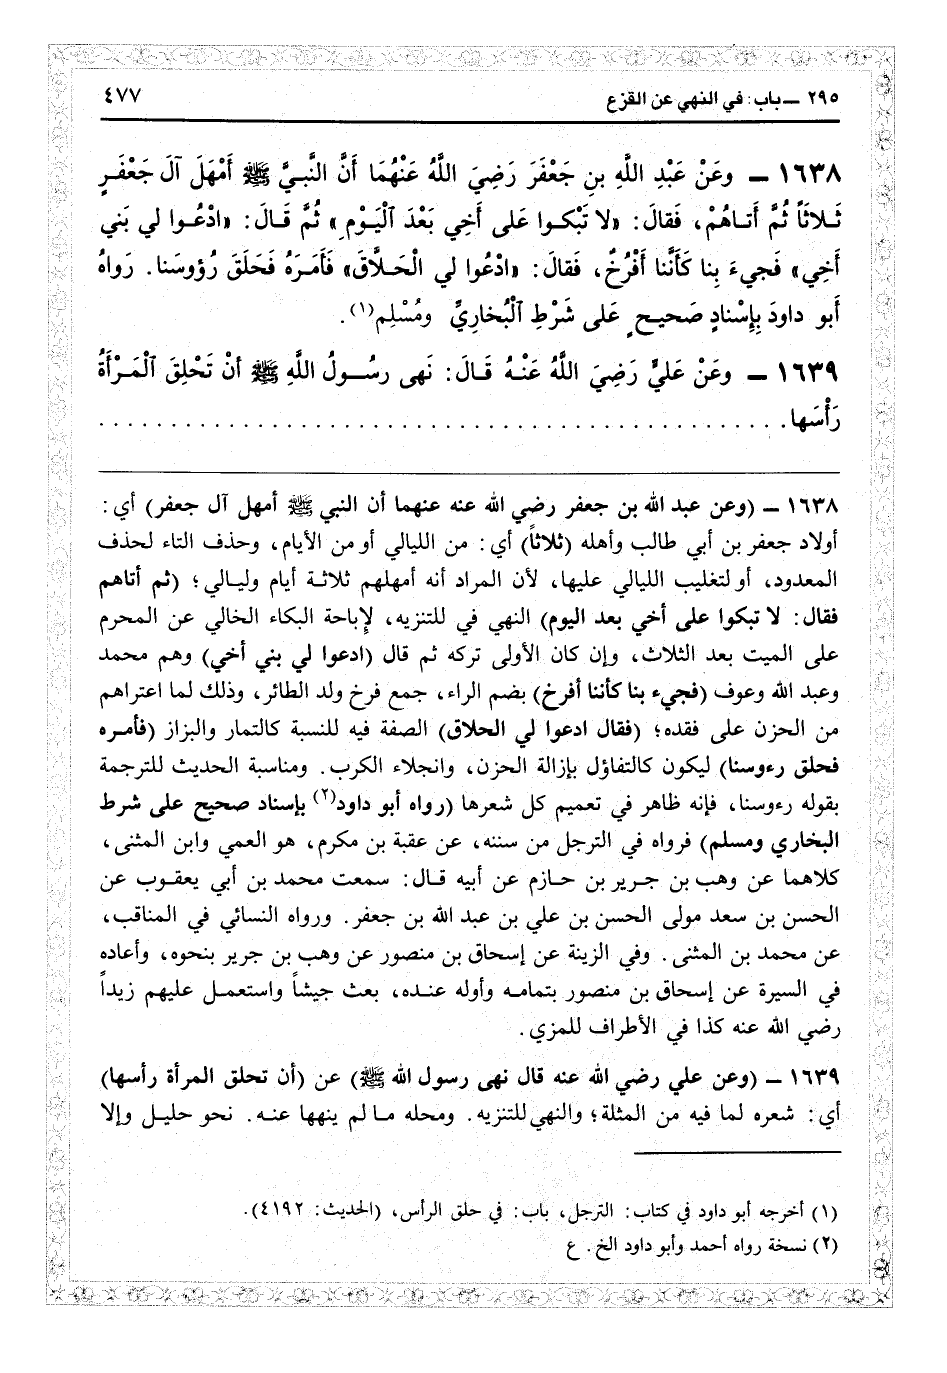 ٢٩٥ ــ باب: في النهي عن القزع ٤٧٧
١٦٣٨ ــ وعَنْ عَبْدِ اللَّهِ بنِ جَعْفَرَ رَضِيَ اللَّهُ عَنْهُمَا أَنَّ النَّبِيَّ ﷺ أَمْهَلَ آلَ جَعْفَرٍ
ثَلاثَاً ثُمَّ أَتاهُمْ، فَقالَ: «لا تَبْكوا عَلى أَخِي بَعْدَ ٱلْيَوْمِ» ثُمَّ قَالَ: «ادْعُوا لي بَني
أَخِي» فَجِيءَ بِنا كَأَنَّنا أَفْرُخٌ، فَقالَ: «ادْعُوا لي الْحَلاَّقَ» فَأَمَرَهُ فَحَلَقَ رُؤوسَنا. رَواهُ
أَبو داودَ بِإِسْنادٍ صَحيحٍ عَلى شَرْطِ ٱلْبُخارِيِّ ومُسْلِم(١).
١٦٣٩ ــ وعَنْ عَليٍّ رَضِيَ اللَّهُ عَنْهُ قَالَ: نَهى رسُولُ اللَّهِ ﷺ أنْ تَحْلِقَ ٱلْمَرْأَةُ
رَأْسَها. . . . . . . . . . . . . . . . . . . . . . . . . . . . . . . . . . . . . . . . . . . . . . .
١٦٣٨ ــ (وعن عبد الله بن جعفر رضي الله عنه عنهما أن النبي ﷺ أمهل آل جعفر) أي:
أولاد جعفر بن أبي طالب وأهله (ثلاثاً) أي: من الليالي أو من الأيام، وحذف التاء لحذف
المعدود، أو لتغليب الليالي عليها، لأن المراد أنه أمهلهم ثلاثة أيام وليالي؛ (ثم أتاهم
فقال: لا تبكوا على أخي بعد اليوم) النهي في للتنزيه، لإباحة البكاء الخالي عن المحرم
على الميت بعد الثلاث، وإن كان الأولى تركه ثم قال (ادعوا لي بني أخي) وهم محمد
وعبد الله وعوف (فجيء بنا كأننا أفرخ) بضم الراء، جمع فرخ ولد الطائر، وذلك لما اعتراهم
من الحزن على فقده؛ (فقال ادعوا لي الحلاق) الصفة فيه للنسبة كالتمار والبزاز (فأمره
فحلق رءوسنا) ليكون كالتفاؤل بإزالة الحزن، وانجلاء الكرب. ومناسبة الحديث للترجمة
بقوله رءوسنا، فإنه ظاهر في تعميم كل شعرها (رواه أبو داود(٢) بإسناد صحيح على شرط
البخاري ومسلم) فرواه في الترجل من سننه، عن عقبة بن مكرم، هو العمي وابن المثنى،
كلاهما عن وهب بن جرير بن حازم عن أبيه قال: سمعت محمد بن أبي يعقوب عن
الحسن بن سعد مولى الحسن بن علي بن عبد الله بن جعفر. ورواه النسائي في المناقب،
عن محمد بن المثنى. وفي الزينة عن إسحاق بن منصور عن وهب بن جرير بنحوه، وأعاده
في السيرة عن إسحاق بن منصور بتمامه وأوله عنده، بعث جيشاً واستعمل عليهم زيداً
رضي الله عنه كذا في الأطراف للمزي.
١٦٣٩ ــ (وعن علي رضي الله عنه قال نهى رسول الله ﷺ) عن (أن تحلق المرأة رأسها)
أي: شعره لما فيه من المثلة؛ والنهي للتنزيه. ومحله ما لم ينهها عنه. نحو حليل وإلا
(١) أخرجه أبو داود في كتاب: الترجل، باب: في حلق الرأس، (الحديث: ٤١٩٢).
(٢) نسخة رواه أحمد وأبو داود الخ. ع